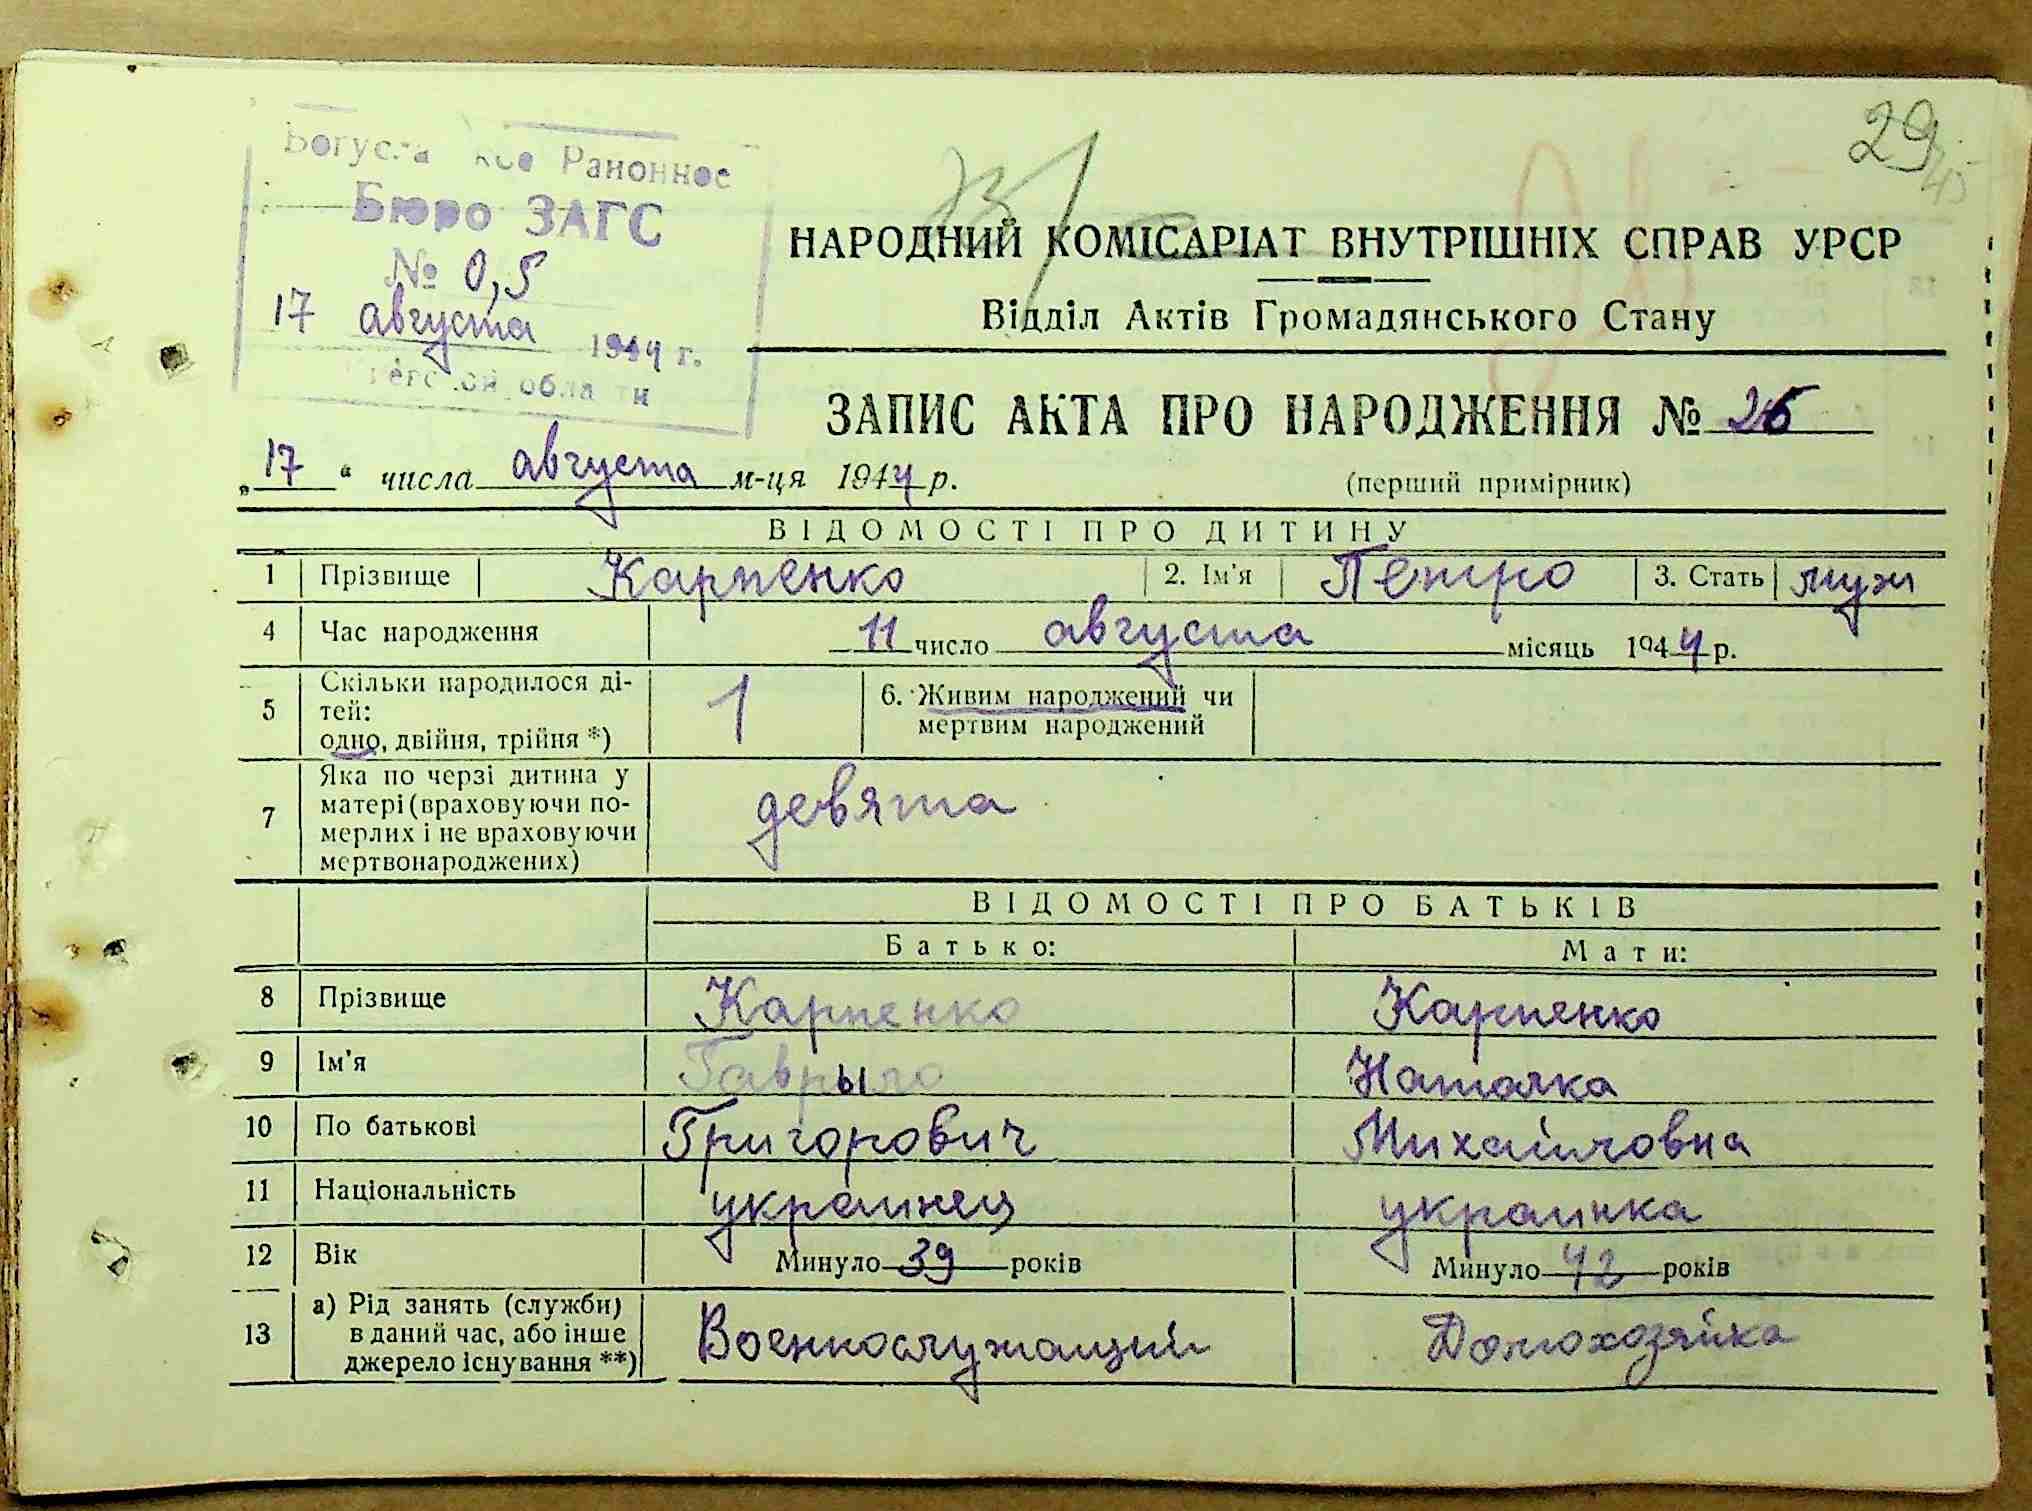 29
Районное
Бюро ЗАГС
№ 0,5
17 августа 1944 г.
НАРОДНИЙ КОМІСАРІАТ ВНУТРІШНІХ СПРАВ УРСР
Відділ Актів Громадянського Стану
ЗАПИС АКТА ПРО НАРОДЖЕННЯ №
„17“ числа августа м-ця 1944 р.
(перший примірник)
ВІДОМОСТІ ПРО ДИТИНУ
1 Прізвище Карпенко 2. Ім'я Петро 3. Стать муж
4 Час народження 11 число августа місяць 1944 р.
5 Скільки народилося ді-
тей:
одно, двійня, трійня *)
1
6. Живим народжений чи
мертвим народжений
7 Яка по черзі дитина у
матері (враховуючи по-
мерлих і не враховуючи
мертвонароджених)
девята
ВІДОМОСТІ ПРО БАТЬКІВ
Батько: Мати:
8 Прізвище Карпенко Карпенко
9 Ім'я Гаврыло Наталка
10 По батькові Григорович Михайловна
11 Національність украинец украинка
12 Вік Минуло 39 років Минуло 42 років
13 а) Рід занять (служби)
в даний час, або інше
джерело існування **)
Военнослужащий Домохозяйка